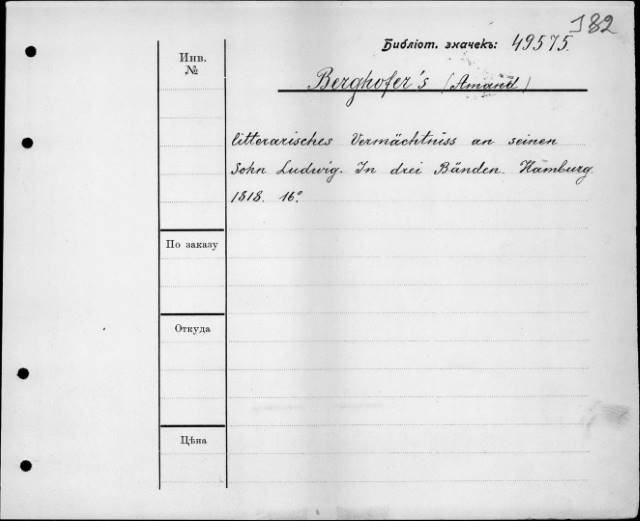 182
Библіот. значекъ: 49575.
Инв.
№
Berghofer's (Amand)
litterarisches Vermächtniss an seinen
Sohn Ludwig. In drei Bänden. Hamburg.
1818. 16°
По заказу
Откуда
Цѣна